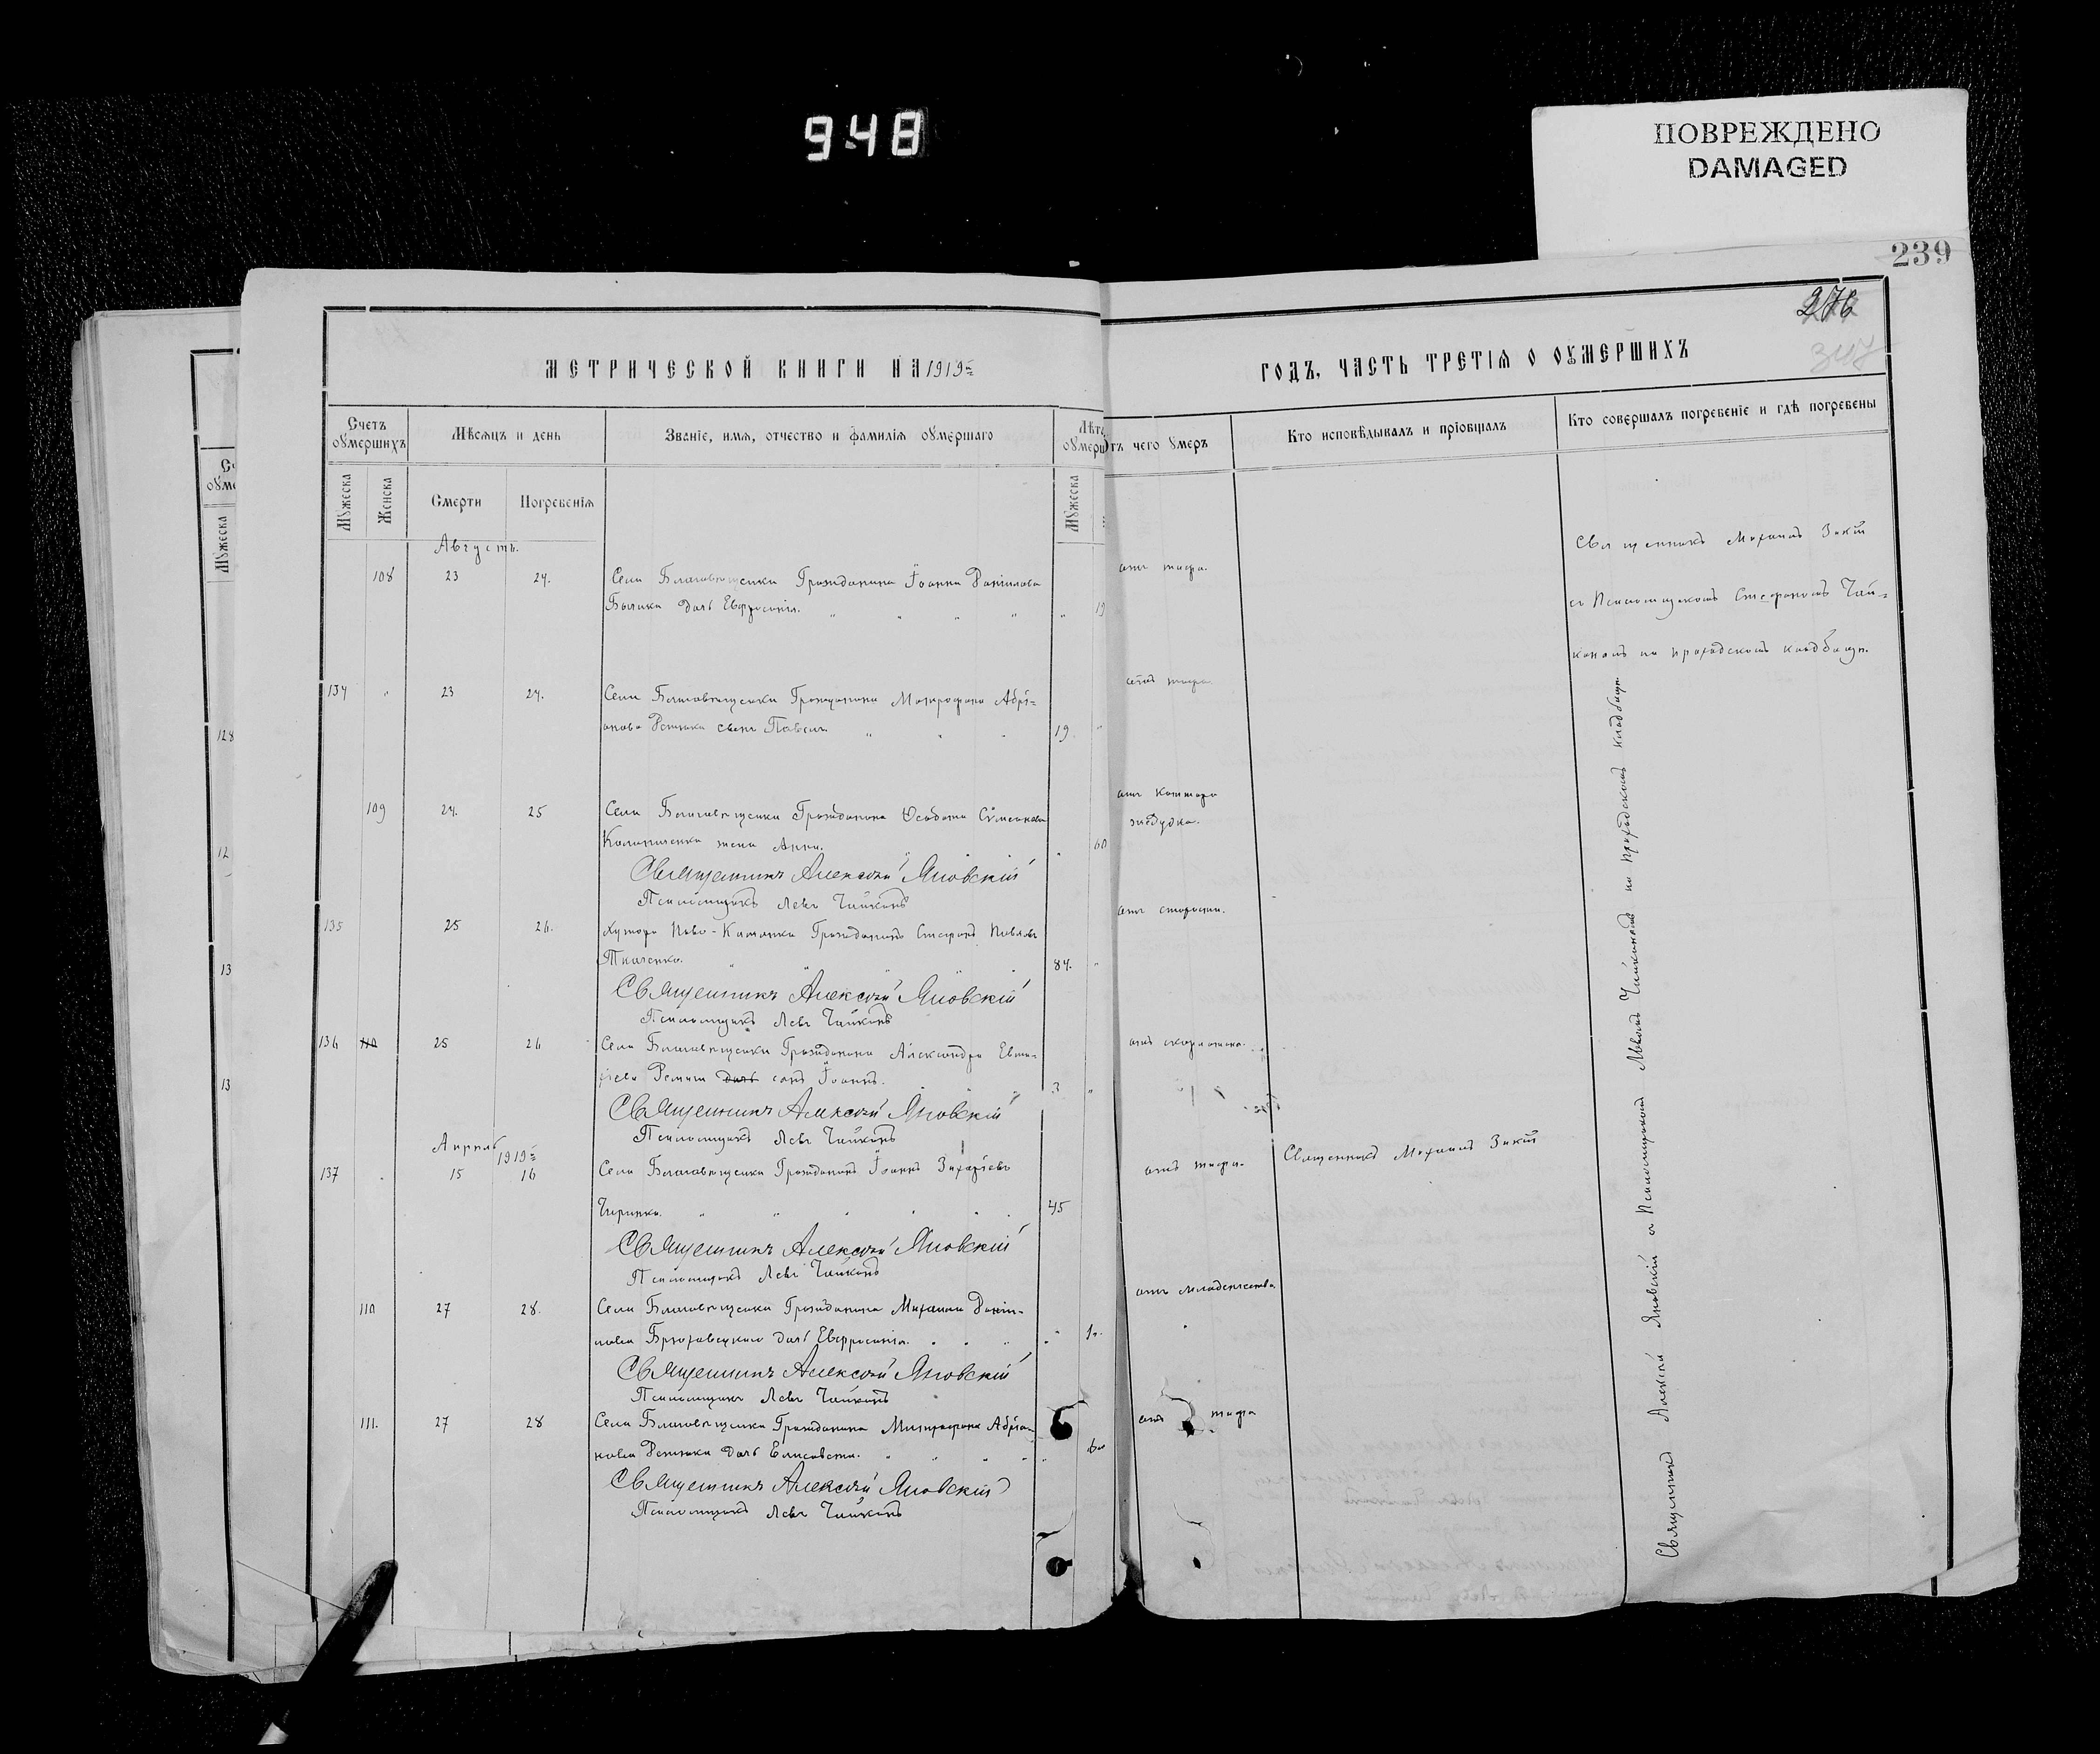 948
ПОВРЕЖДЕНО
DAMAGED
239
276
МЕТРИЧЕСКОЙ КНИГИ НА 1919
ГОДЪ, ЧАСТЬ ТРЕТІѦ О ОУМЕРШИХЪ
Счетъ оумершихъ
Мѣсяцъ и день
Званіе, имя, отчество и фамилія оумершаго
Лѣта оумерш
тъ чего умеръ
Кто исповѣдывалъ и пріобщалъ
Кто совершалъ погребеніе и гдѣ погребены
Мужеска
Женска
Смерти
Погребенія
Мужеска
Августъ.
108 23 24. Села Благовѣщенки Гражданина Іоанна Даніилова
дочь Евфросинія. " " " " " 19
отъ тифа.
Священникъ Михаилъ
съ Псаломщикомъ Стефаномъ Чай-
кономъ на приходскомъ кладбищѣ.
134 " 23 24. Села Благовѣщенки Гражданина Митрофана Адрі-
анова Репяха сынъ Павелъ. " " " 19. "
отъ тифа.
109 24. 25 Села Благовѣщенки Гражданина Симеонова
жена Анна. " " 60
отъ
желудка.
Священникъ Алексѣй Яновскій
Псаломщикъ Левъ Чайконъ
135 25 26. Хутора Ново-Каменка Гражданинъ Стефанъ
Ткаченко. " " " " 84. "
отъ старости.
Священникъ Алексѣй Яновскій
Псаломщикъ Левъ Чайконъ
136 110 25 26 Села Благовѣщенки Гражданина Александра
дочь сынъ Іоаннъ. " " 3 "
отъ скарлатины.
Священникъ Алексѣй Яновскій
Псаломщикъ Левъ Чайконъ
Апрѣль 1919
137 . 15 16 Села Благовѣщенки Гражданинъ Іоаннъ Захаріевъ
" " " " " " 45
отъ тифа.
Священникъ Михаилъ
Священникъ Алексѣй Яновскій
Псаломщикъ Левъ Чайконъ
110 27 28. Села Благовѣщенки Гражданина Михаила Даніи-
лова Брюховецкаго дочь Евфросинія. " " " "
отъ младенчества.
Священникъ Алексѣй Яновскій
Псаломщикъ Левъ Чайконъ
111. 27 28 Села Благовѣщенки Гражданина Митрофана Адріа-
нова Репяха дочь Елисавета. " " " " "
отъ тифа
Священникъ Алексѣй Яновскій
Псаломщикъ Левъ Чайконъ
Священникъ Алексѣй Яновскій съ Псаломщикомъ Львомъ Чайкономъ на приходскомъ кладбищѣ
128
12
13
13